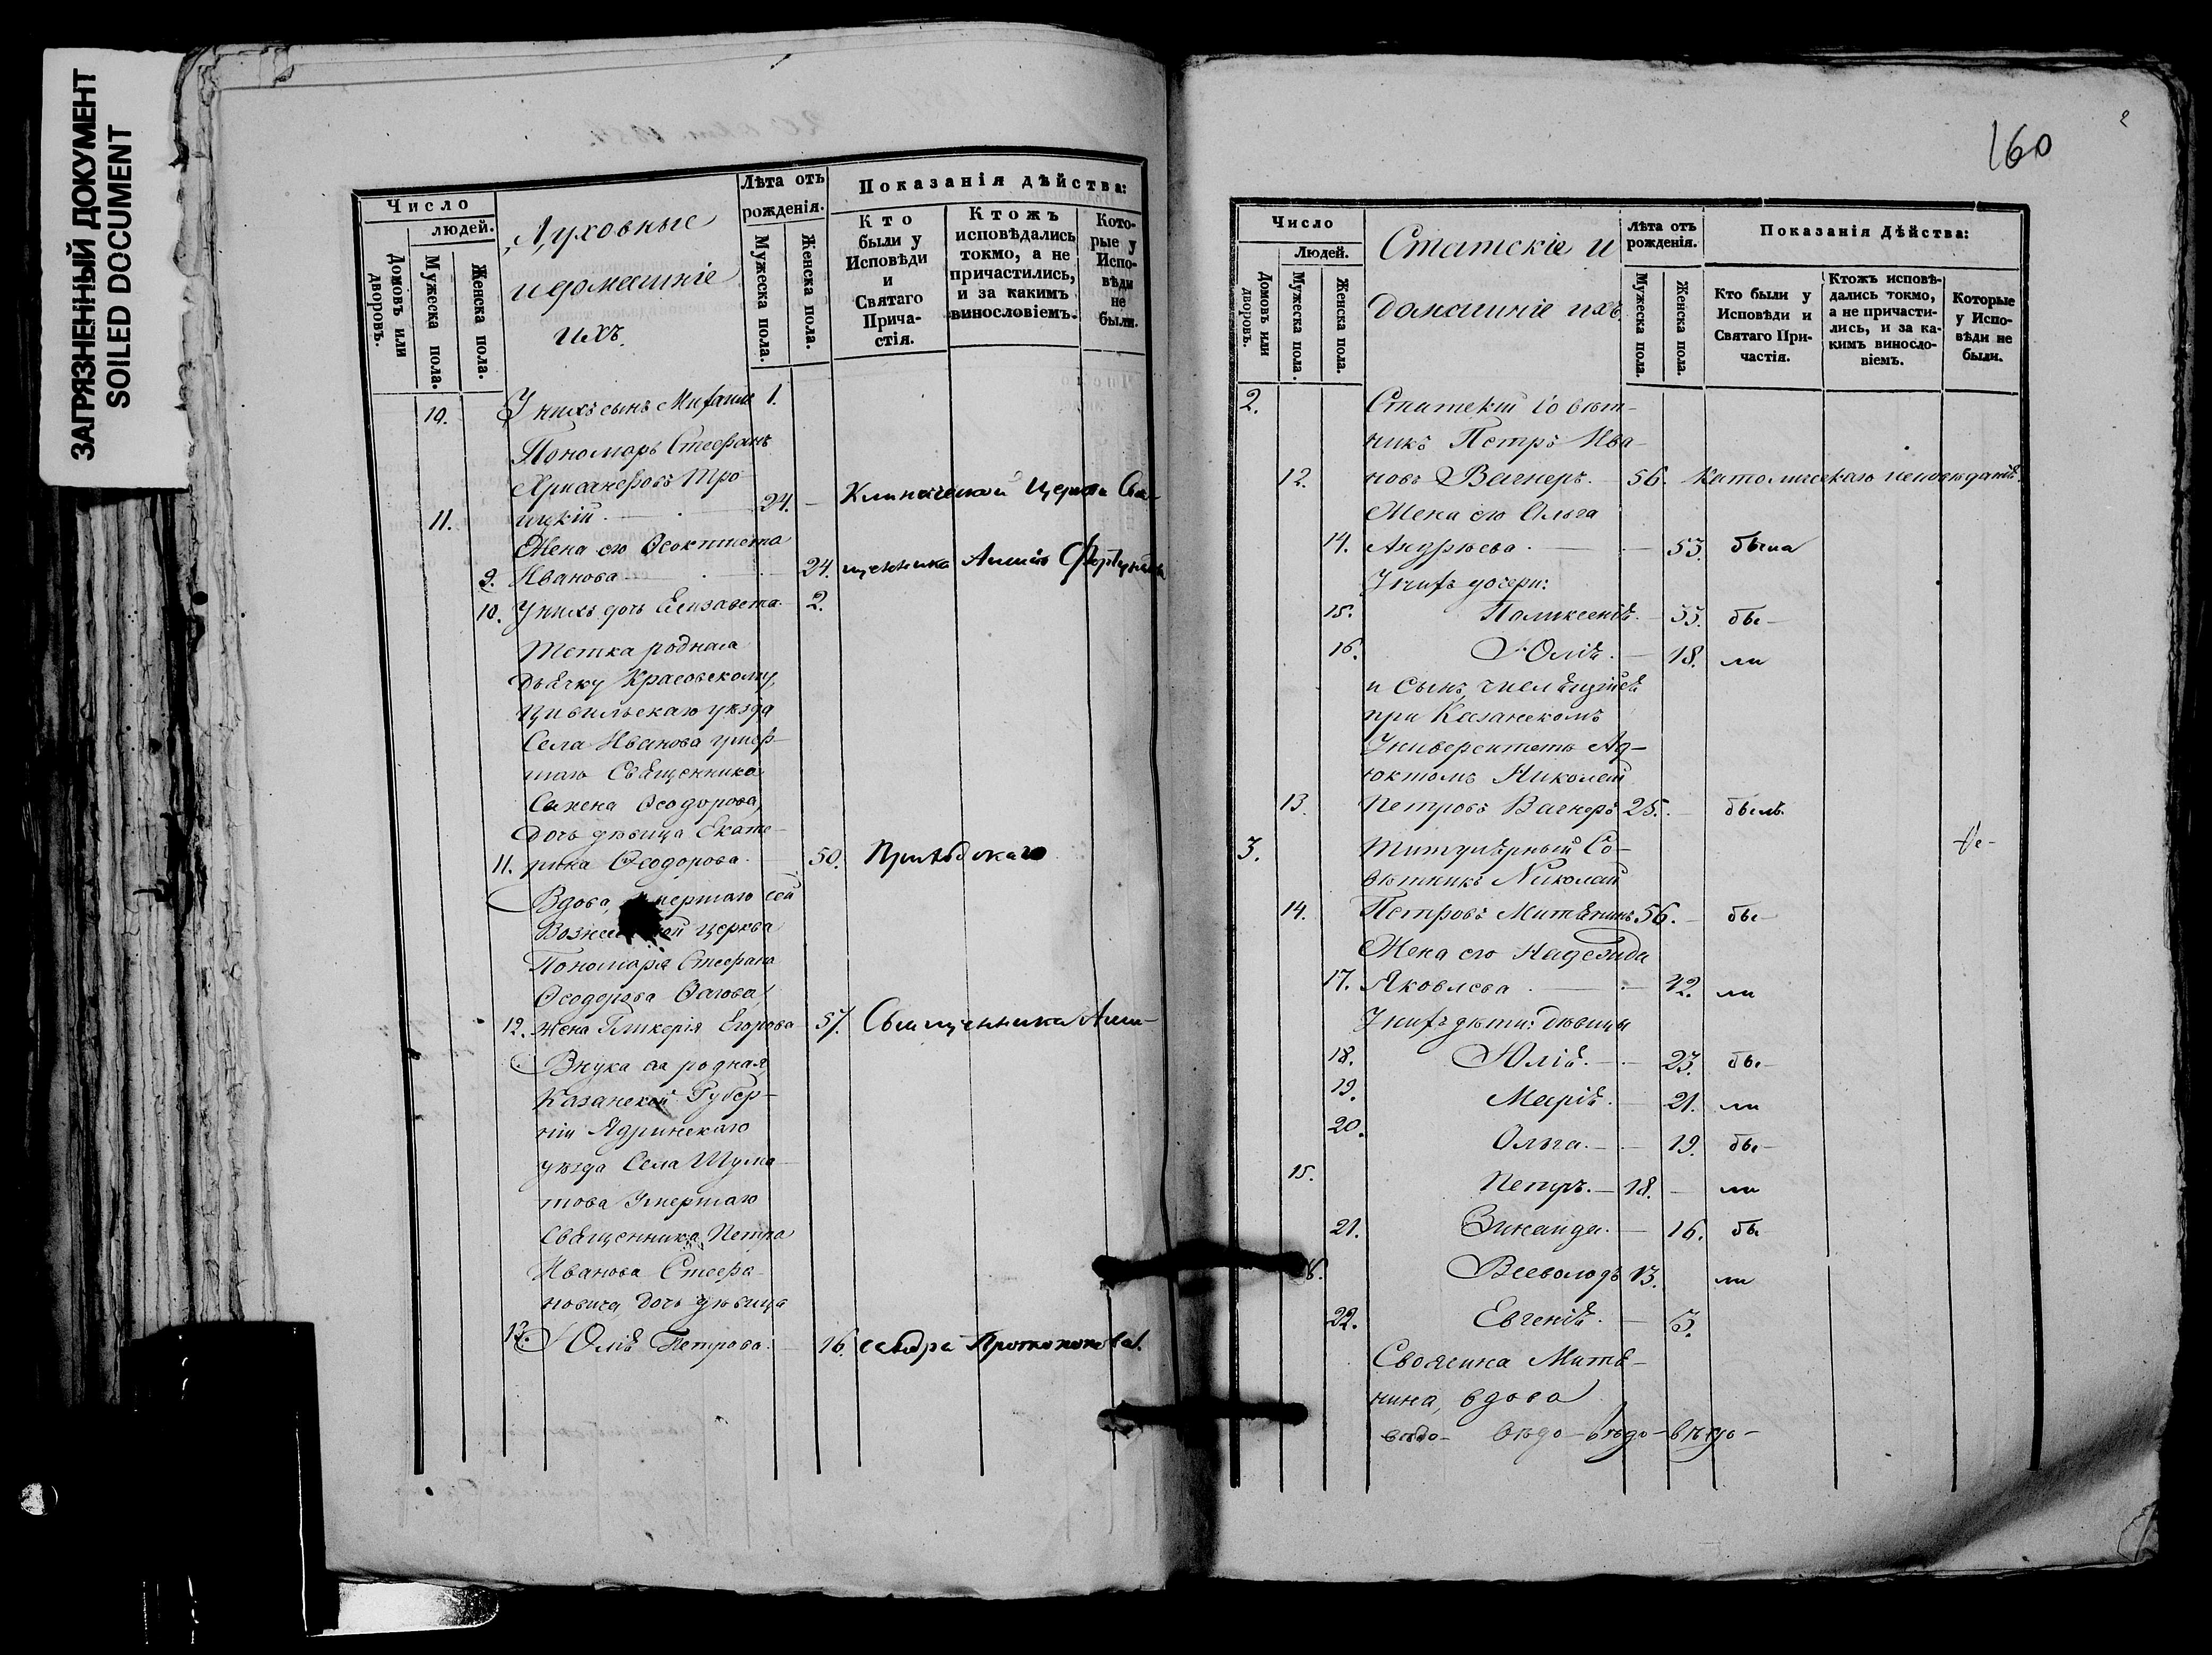 ЗАГРЯЗНЕННЫЙ ДОКУМЕНТ
SOILED DOCUMENT
Число
людей.
Домовъ или дворовъ.
Мужеска пола.
Женска пола.
Духовные
и домашніе
ихъ.
Лѣта отъ
рожденія.
Мужеска пола.
Женска пола.
Показанія дѣйства:
Кто
были у
Исповѣди
и
Святаго
Прича-
стія.
Ктожъ
исповѣдались
токмо, а не
причастились,
и за какимъ
винословіемъ.
Кото-
рые у
Испо-
вѣди
не
были.
10. У нихъ сынъ Михаилъ 1.
Пономарь Стефанъ
Хрисанфовъ Тро-
11. ицкій. 24. — Клинической Церкви Свя-
Жена его Ѳеоктиста
9. Иванова 24. щенника
10. У нихъ дочь Елисавета. 2.
Тетка родная
Дьячку Красовскому,
Цивильскаго уѣзда
Села Иванова умер-
шаго Священника
Ѳеодорова,
дочь дѣвица Екате-
11. рина Ѳеодорова. 50. Приходскаго
Вдова, умершаго сей
церкви
Пономаря Стефана
Ѳеодорова
12. жена Гликерія Егорова 57. Священника Алек-
Внука ея родная,
Казанской Губер-
ніи Ядринскаго
уѣзда Села Шума-
това Умершаго
Священника Петра
Иванова Стефа-
новича, дочь дѣвица
13. Юлія Петрова. 16. сандра Протопопова.
160
2
Число
Людей.
Домовъ или дворовъ.
Мужеска пола.
Женска пола.
Статскіе и
домашніе ихъ.
Лѣта отъ
рожденія.
Мужеска пола.
Женска пола.
Показанія Дѣйства:
Кто были у
Исповѣди и
Святаго При-
частія.
Ктожъ исповѣ-
дались токмо,
а не причасти-
лись, и за ка-
кимъ виносло-
віемъ.
Которые
у Испо-
вѣди не
были.
2. Статскій Совѣт-
никъ Петръ Ива-
12. новъ Вагнеръ. 56. Католическаго исповѣданія.
Жена его Ольга
14. Андрѣева. — 53. была
У нихъ дочери:
15. Поликсенія. 33. бы-
16. Юлія. — 18. ли
и сынъ, числящійся
при Казанскомъ
Университетѣ Ад-
юнктомъ Николай
13. Петровъ Вагнеръ 25. — былъ.
3. Титулярный Со-
вѣтникъ Николай
14. Петровъ Митянинъ 56. — бы-
Жена его Надежда
17. Яковлева. — 42. ли
У нихъ дѣти: дѣвицы
18. Юлія. — 23. бы-
19. Марія. — 21. ли
20. Ольга. — 19. бы-
15. Петръ. — 18. — ли
21. Зинаида. — 16. бы
16. Всеволодъ 13. ли
22. Евгенія. — 3.
Своячина Митя-
нина, вдова
вѣдо- вѣдо- вѣдо- вѣдо-